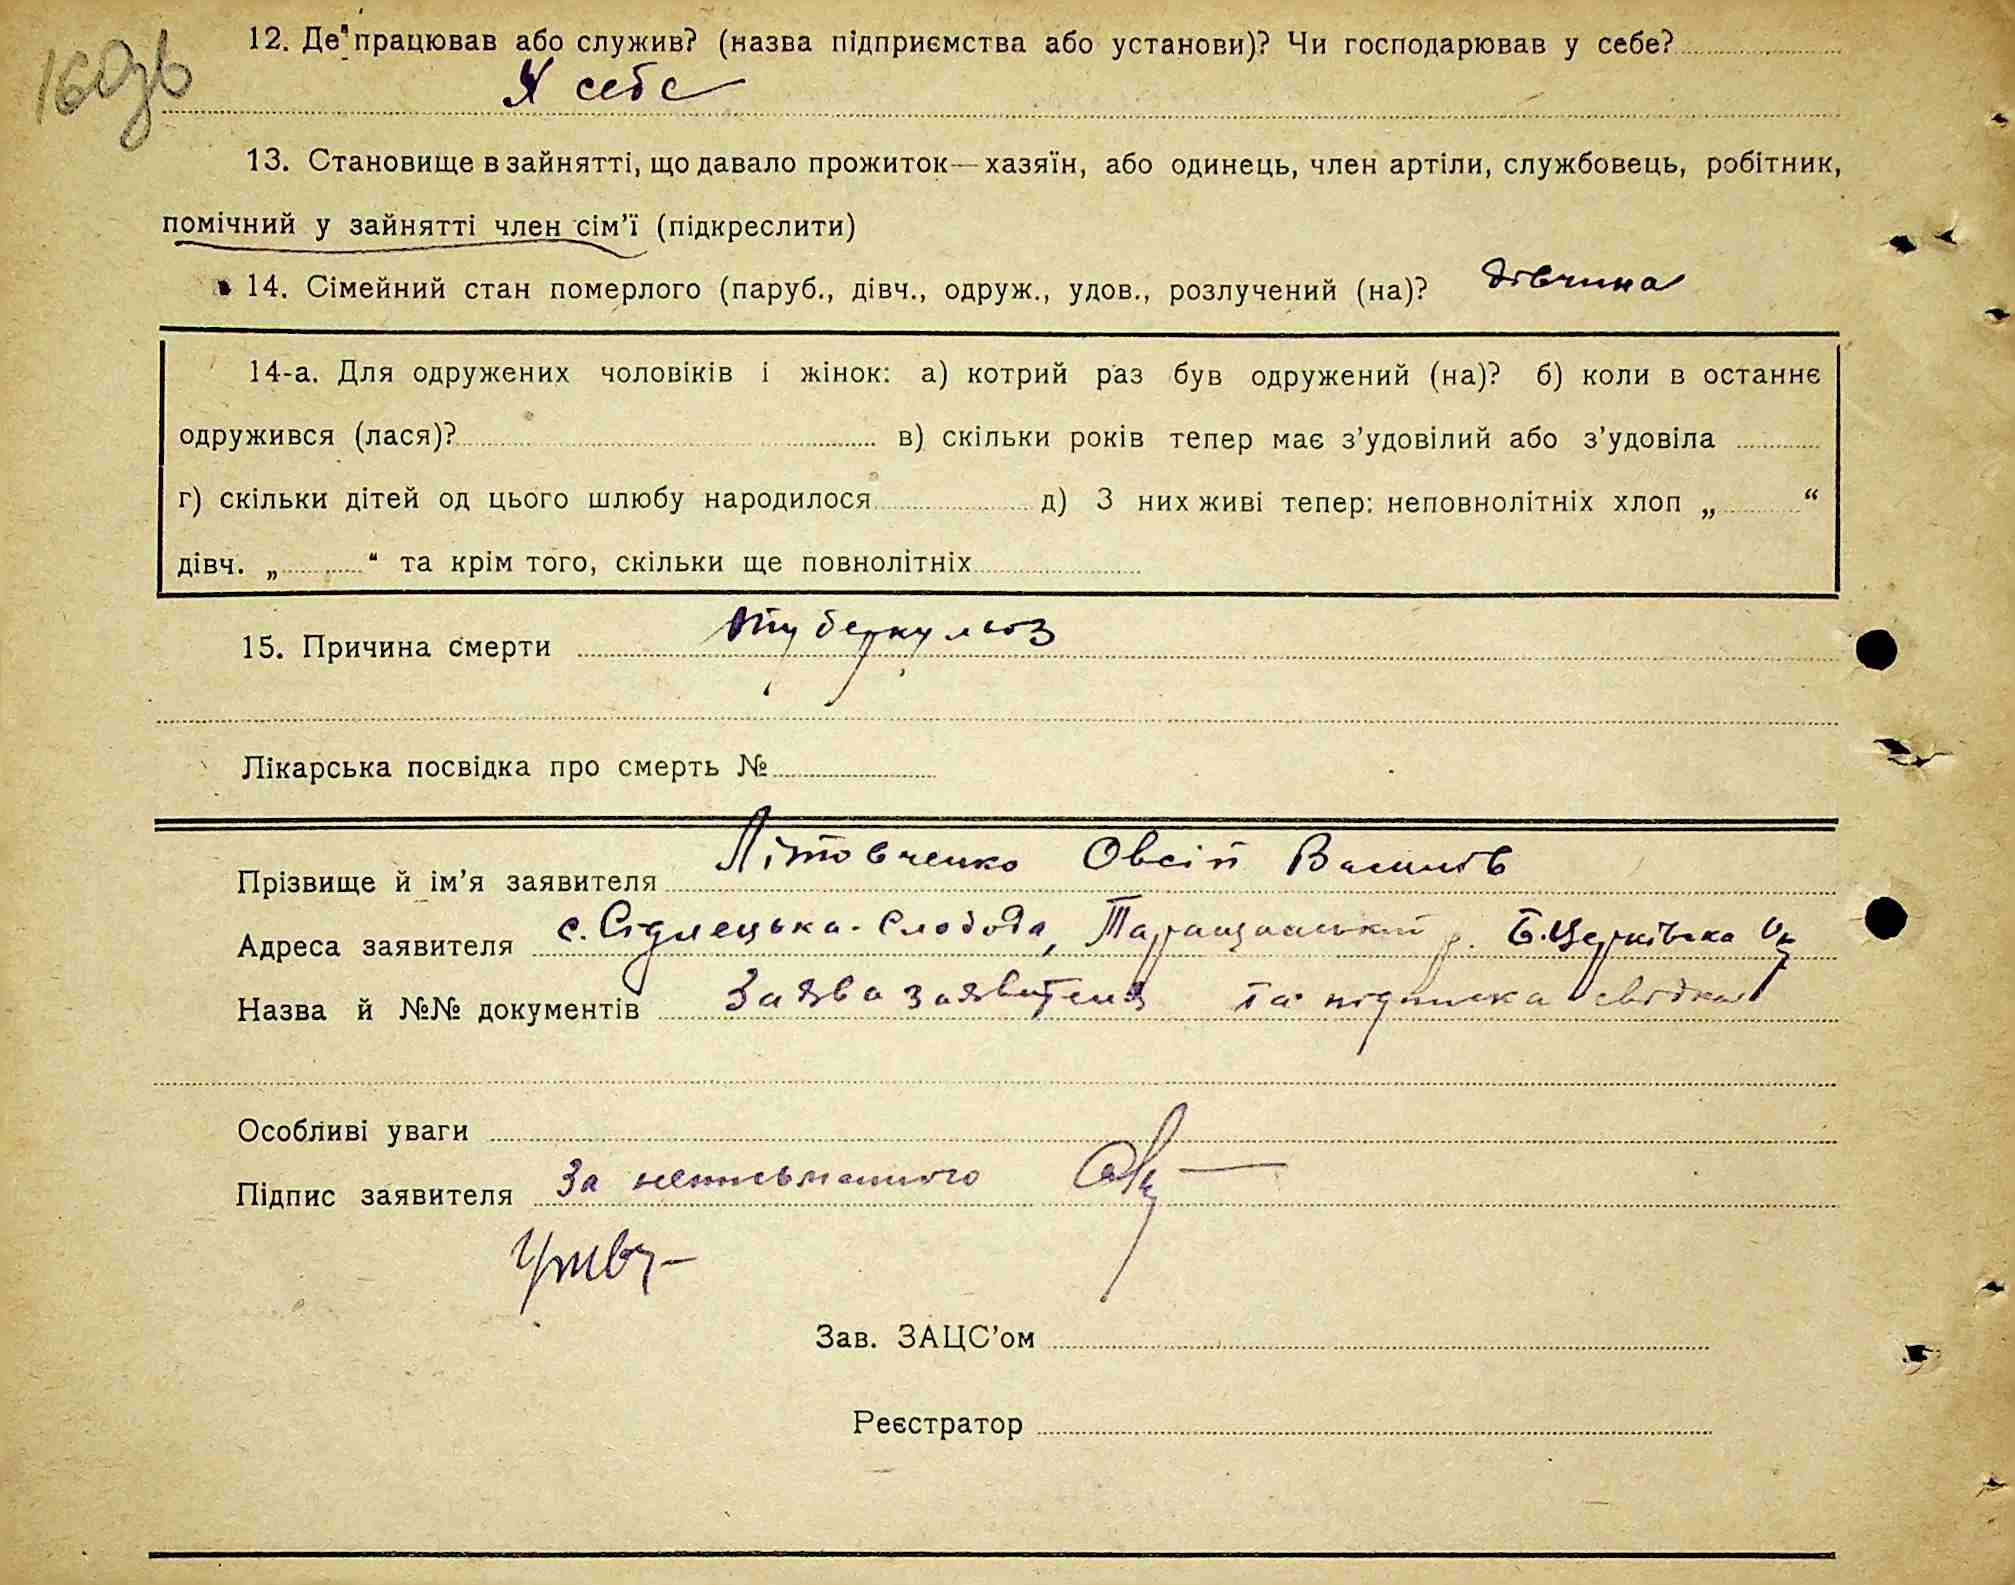 160зв
12. Де працював або служив? (назва підприємства або установи)? Чи господарював у себе?
У себе
13. Становище в зайнятті, що давало прожиток—хазяїн, або одинець, член артіли, службовець, робітник,
помічний у зайнятті член сім’ї (підкреслити)
14. Сімейний стан померлого (паруб., дівч., одруж., удов., розлучений (на)? дівчина
14-а. Для одружених чоловіків і жінок: а) котрий раз був одружений (на)? б) коли в останнє
одружився (лася)? в) скільки років тепер має з’удовілий або з’удовіла
г) скільки дітей од цього шлюбу народилося д) З них живі тепер: неповнолітніх хлоп „ “
дівч. „ “ та крім того, скільки ще повнолітніх
15. Причина смерти туберкульоз
Лікарська посвідка про смерть №
Прізвище й ім’я заявителя Літовченко Овсій Васильів
Адреса заявителя с. Сідлецька-Слобода, Таращанський р. Б.Церківська
Назва й №№ документів Заява заявителя та підписка свідків
Особливі уваги
Підпис заявителя За неписьменного
Зав. ЗАЦС’ом
Реєстратор